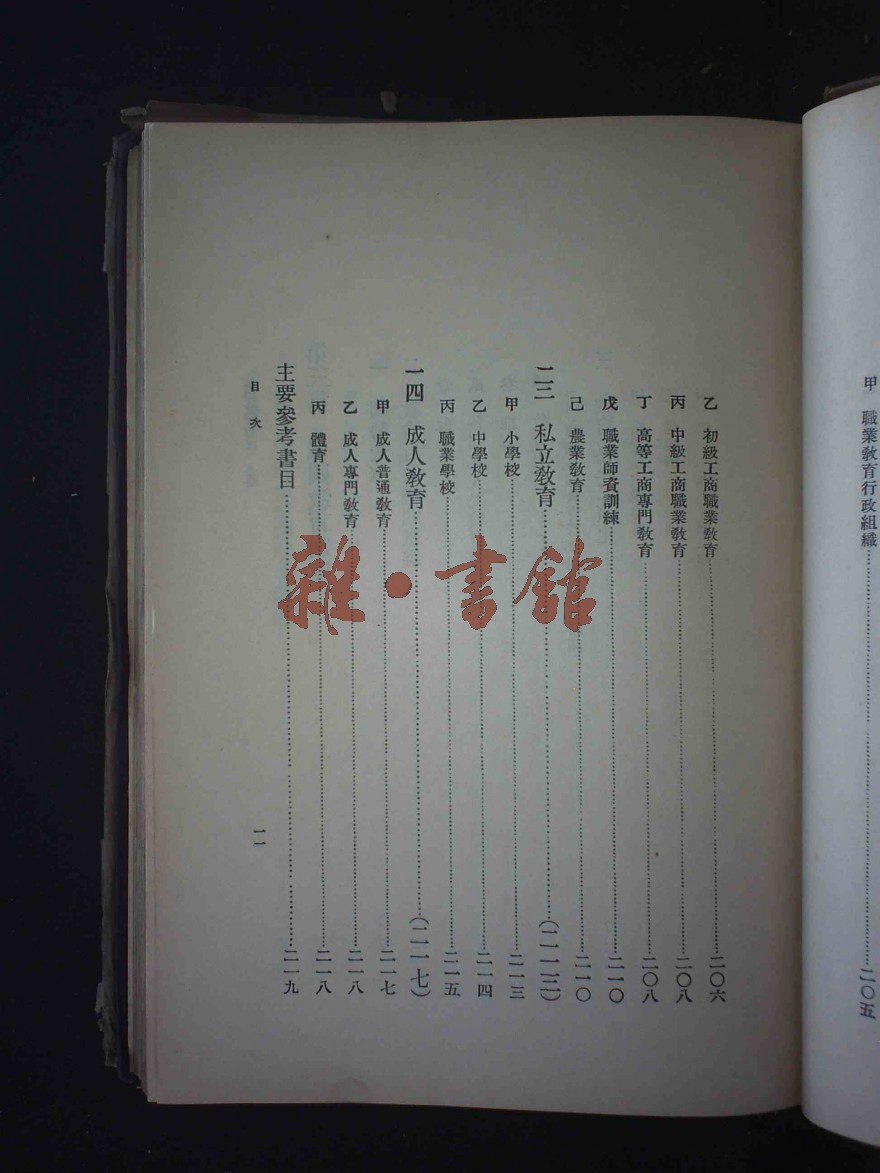 甲 職業教育行政組織……二〇五
乙 初級工商職業教育……二〇六
丙 中級工商職業教育……二〇八
丁 高等工商專門教育……二〇八
戊 職業師資訓練……二一〇
己 農業教育……二一〇
一三 私立教育……(二一三)
甲 小學校……二一三
乙 中學校……二一四
丙 職業學校……二一五
一四 成人教育……(二一七)
甲 成人普通教育……二一七
乙 成人專門教育……二一八
丙 體育……二一八
主要參考書目……二一九
目次
一一
雜·書館